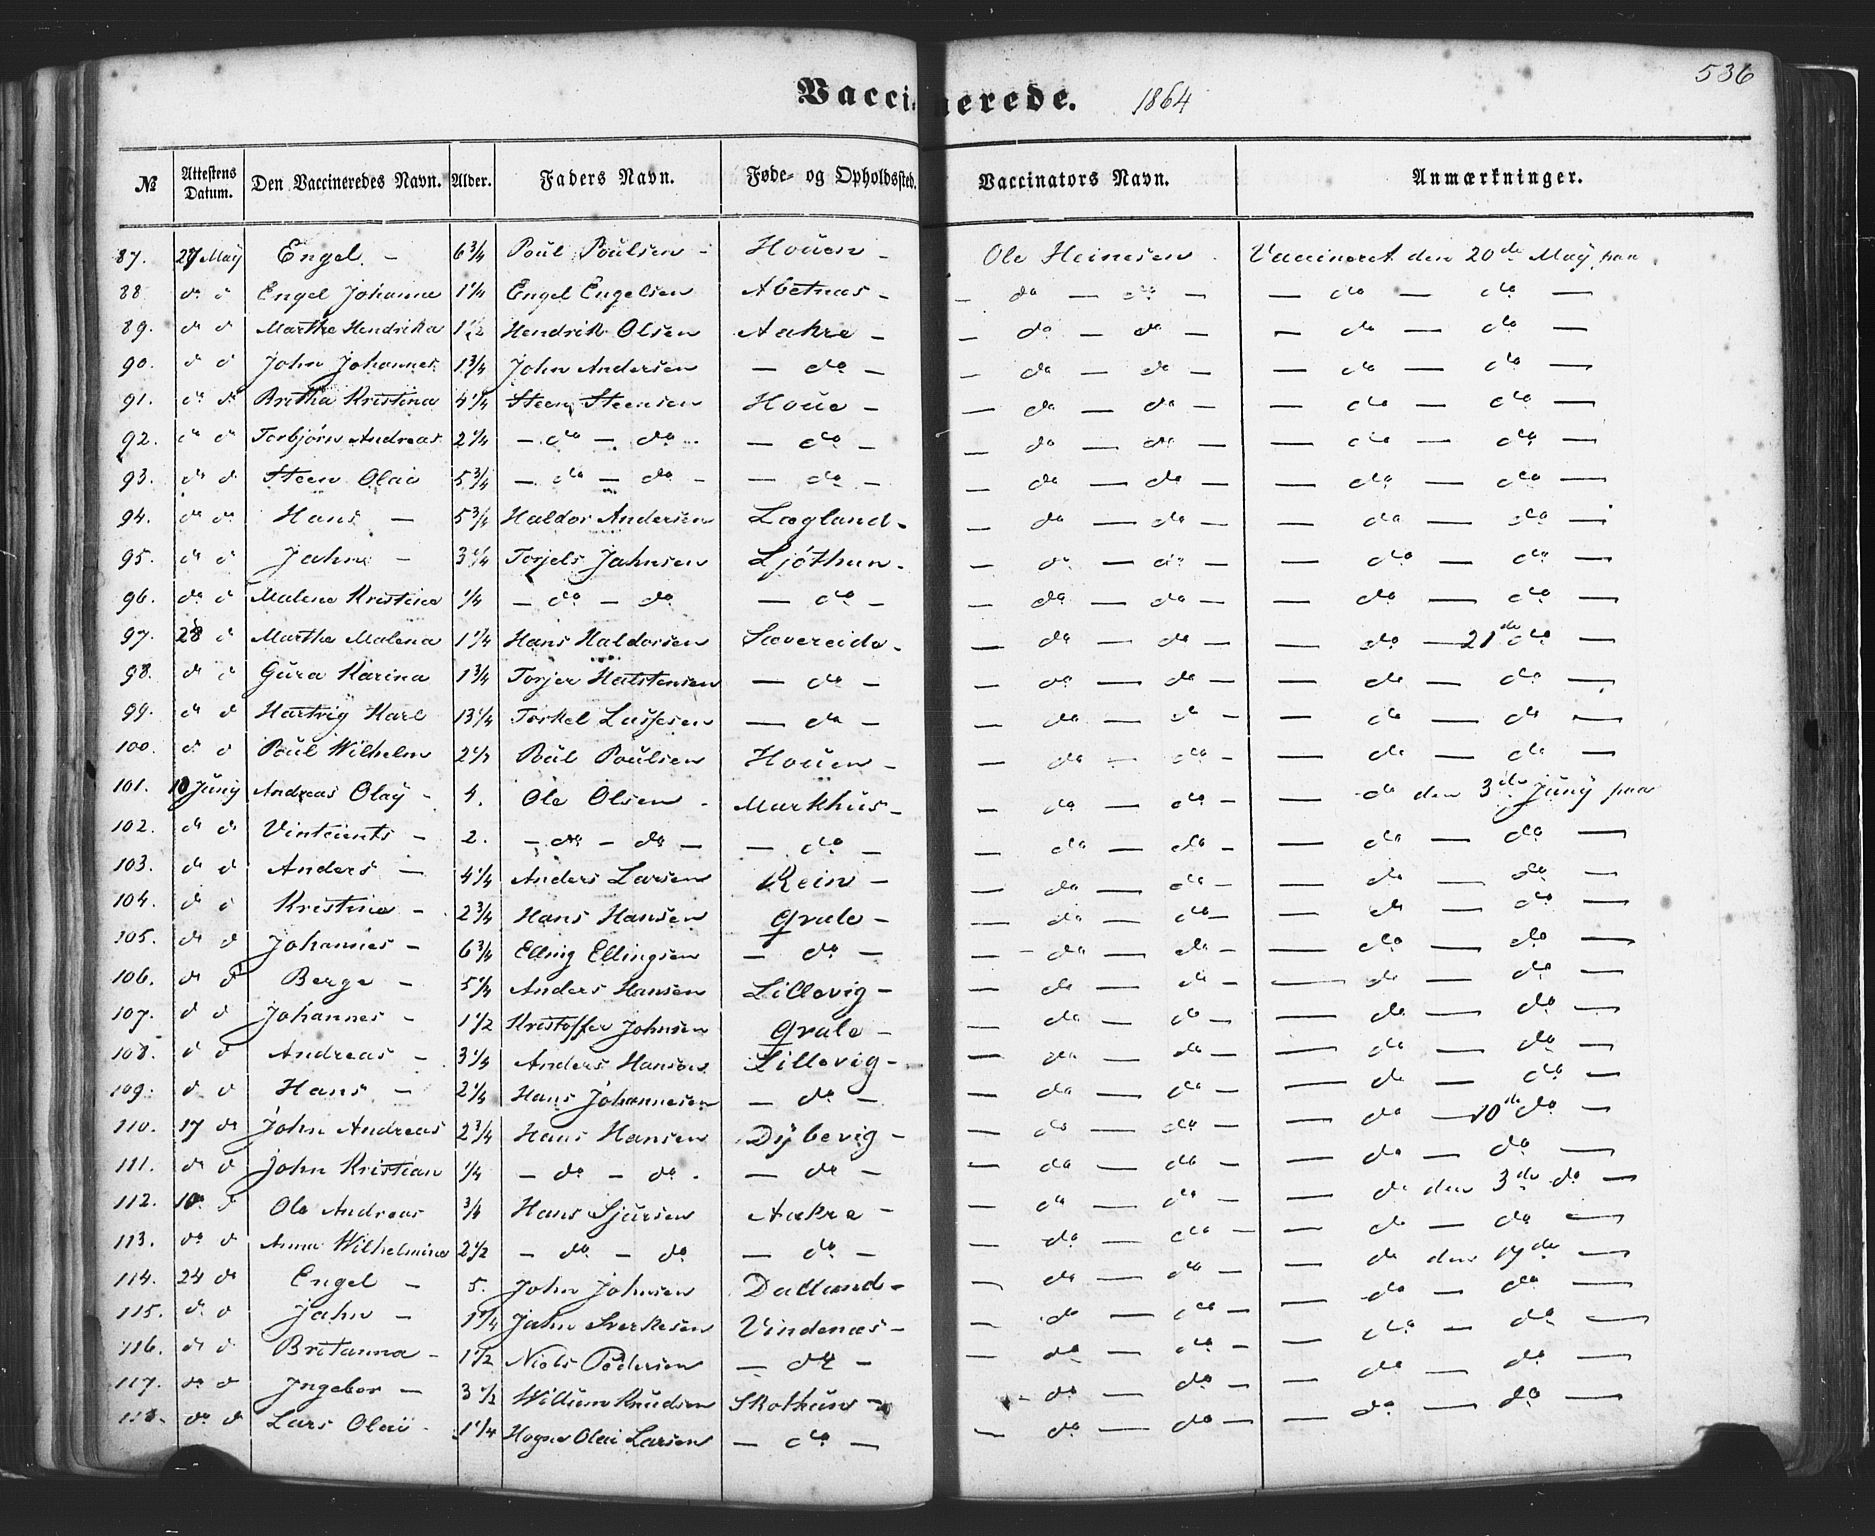 536
Vaccinerede. 1864
№ Attestens Datum. Den Vaccineredes Navn. Alder. Faders Navn. Føde- og Opholdssted. Vaccinators Navn. Anmærkninger.
87. 27 May Engel - 6 3/4 Poul Poulsen - Houen - Ole Heinesen Vaccineret den 20de May paa
88 do d Engel Johanna 1 1/4 Engel Engelsen Abetnæs - - do - do - - do - do -
89. do d Marthe Hendrika 1 1/2 Hendrik Olsen Aakre - - do - do - - do - do -
90. do d John Johannes 1 3/4 John Andersen - do - - do - do - - do - do -
91. do do Britha Kristina 4 1/4 Steen Steensen Houe - - do - do - - do - do -
92. do d Torbjörn Andreas 2 1/4 - do - do - - do - - do - do - - do - do -
93. do d Steen Olai 5 3/4 - do - do - - do - - do - do - - do - do -
94. do do Hans - 5 3/4 Haldor Andersen Lægland - - do - do - - do - do -
95. do d Jahn - 3 1/4 Torjels Jahnsen Ljöthun - - do - do - - do - do -
96. do d Malena Kristina 1/4 - do - do - do - - do - do - - do - do -
97. 28 d Martha Malena 1 1/4 Hans Haldorsen Sævereide - - do - do - - do - 21de do -
98. do d Gura Karina 1 3/4 Torjer Halstensen - do - - do - do - - do - do -
99. do d Hartvig Karl 13 1/4 Torkel Lassesen - do - - do - do - - do - do -
100. do d Poul Wilhelm 2 1/2 Poul Poulsen Houen - - do - do - - do - do -
101. 10 Juny Andreas Olay - 4. Ole Olsen - Markhus - - do - do - - do den 3de Juny paa
102. do do Vintcents - 2. - do - do - - do - - do - do - - do - do -
103. do d Anders - 4 1/4 Anders Larsen Rein - - do - do - - do - do -
104. do d Kristina - 2 3/4 Hans Hansen Grale - - do - do - - do - do -
105. do d Johannes - 6 3/4 Elling Ellingsen - do - - do - do - - do - do -
106. do d Berge - 5 1/4 Anders Hansen Lillevig - - do - do - - do - do -
107. d d Johannes - 1 1/2 Kristoffer Johnsen Grale - - do - do - - do - do -
108. d d Andreas - 3 1/4 Anders Hansen Lillevig - - do - do - - do - do -
109. d d Hans - 2 1/4 Hans Johannesen - do - - do - do - - do - do -
110. 17 do John Andreas 2 3/4 Hans Hansen Dybevig - - do - do - - do - 10de do -
111. do d John Kristian 1/4 - do - do - - do - - do - do - - do - do -
112. 10 d Ole Andreas 3/4 Hans Sjursen Aakre - - do - do - - do den 3de do -
113. do d Anna Wilhelmina 2 1/2 - do - do - do - - do - do - - do - do -
114. 24 do Engel - 5. John Johnsen Dadland - - do - do - - do den 17de -
115. do d Jahn - 1 1/4 Jahn Sverkesen Vindenæs - - do - do - - do - do -
116. do d Britanna - 1 1/2 Niels Pedersen - do - - do - do - - do - do -
117. do d Ingebor - 3 1/2 Willum Knudsen Skothun - - do - do - - do - do -
118. do d Lars Olai - 1 1/4 Hogne Olai Larsen - do - - do - do - - do - do -